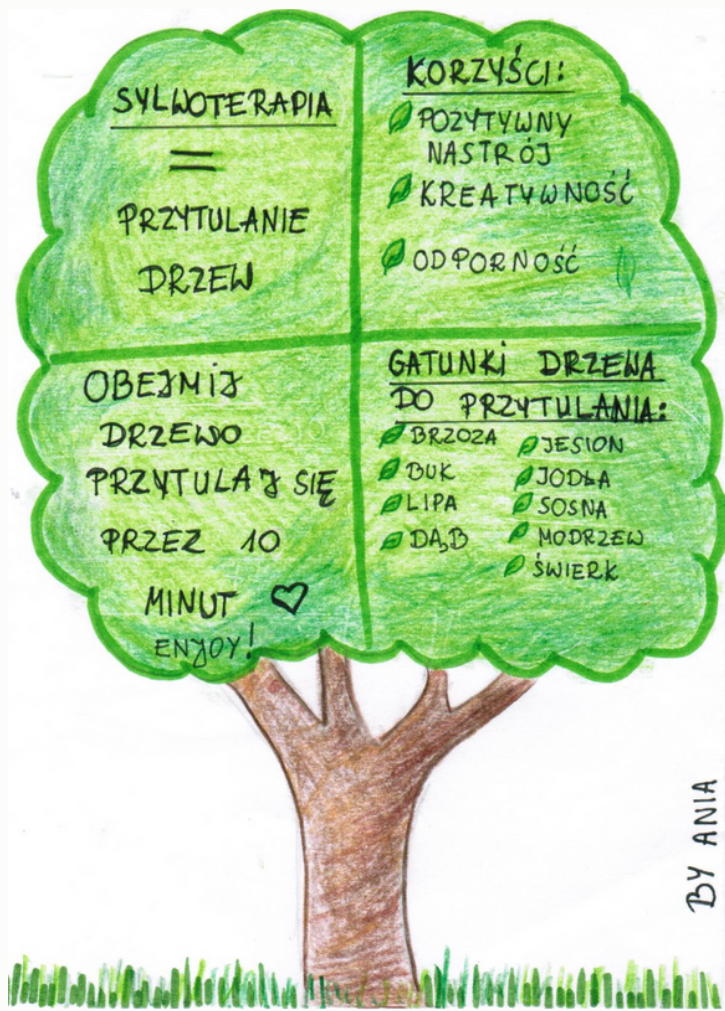 SYLWOTERAPIA
=
PRZYTULANIE
DRZEW
KORZYŚCI:
POZYTYWNY
NASTRÓJ
KREATYWNOŚĆ
ODPORNOŚĆ
OBEJMIJ
DRZEWO
PRZYTULAJ SIĘ
PRZEZ 10
MINUT ♡
ENJOY!
GATUNKI DRZEWA
DO PRZYTULANIA:
BRZOZA
BUK
LIPA
DĄB
JESION
JODŁA
SOSNA
MODRZEW
ŚWIERK
BY ANIA